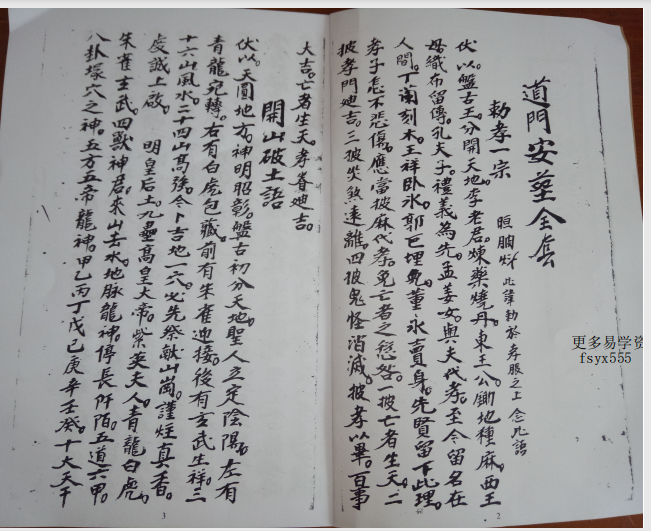 道門安葬全套
勅孝一宗
此諱勅於孝服之上念此語
伏以。盤古王。分開天地。李老君。煉藥燒丹。東王公。鋤地種麻。西王
母織布留傳。孔夫子。禮義為先。孟姜女。與夫代孝。至今留名在
人間。丁蘭刻木。王祥卧冰。郭巨埋兒。董永賣身。先賢留下此理。
孝子怎不悲傷。應當披麻代孝。免亡者之愆咎。一披亡者生天。二
披孝門迪吉。三披災煞遠離。四披鬼怪消滅。披孝以畢。百事
2
大吉。亡者生天。孝眷迪吉。
開山破土語
伏以。天圓地方。神明昭彰。盤古初分天地。聖人立定陰陽。左有
青龍宛轉。右有白虎包藏。前有朱雀迎接。後有玄武生祥。三
十六山風水。二十四山高強。今卜吉地一穴。必先祭献山崗。謹炷真香。
虔誠上啟。 明皇后土。九壘高皇大帝。紫英夫人。青龍白虎。
朱雀玄武。四獸神君。來山去水。地脉龍神。傳長阡陌。五道六甲。
八卦塚穴之神。五方五帝龍神。甲乙丙丁戊己庚辛壬癸。十大天干
3
更多易学资
fsyx555